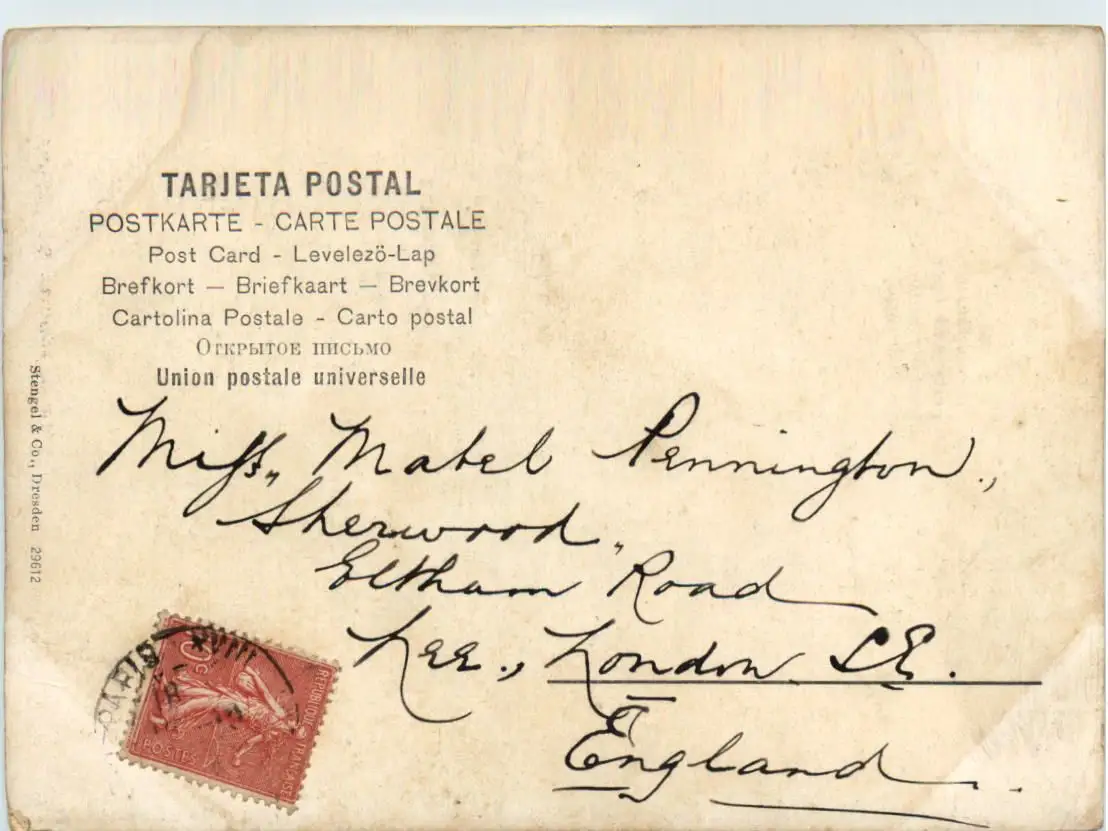 TARJETA POSTAL
POSTKARTE - CARTE POSTALE
Post Card - Levelező-Lap
Brefkort — Briefkaart — Brevkort
Cartolina Postale - Carto postal
Открытое письмо
Union postale universelle
Stengel & Co., Dresden 29612
Miss, Mabel Pennington.,
Sherwood,
Eltham Road
Lee., London S.E.
England.
PARIS XVIII
RÉPUBLIQUE FRANÇAISE
POSTES